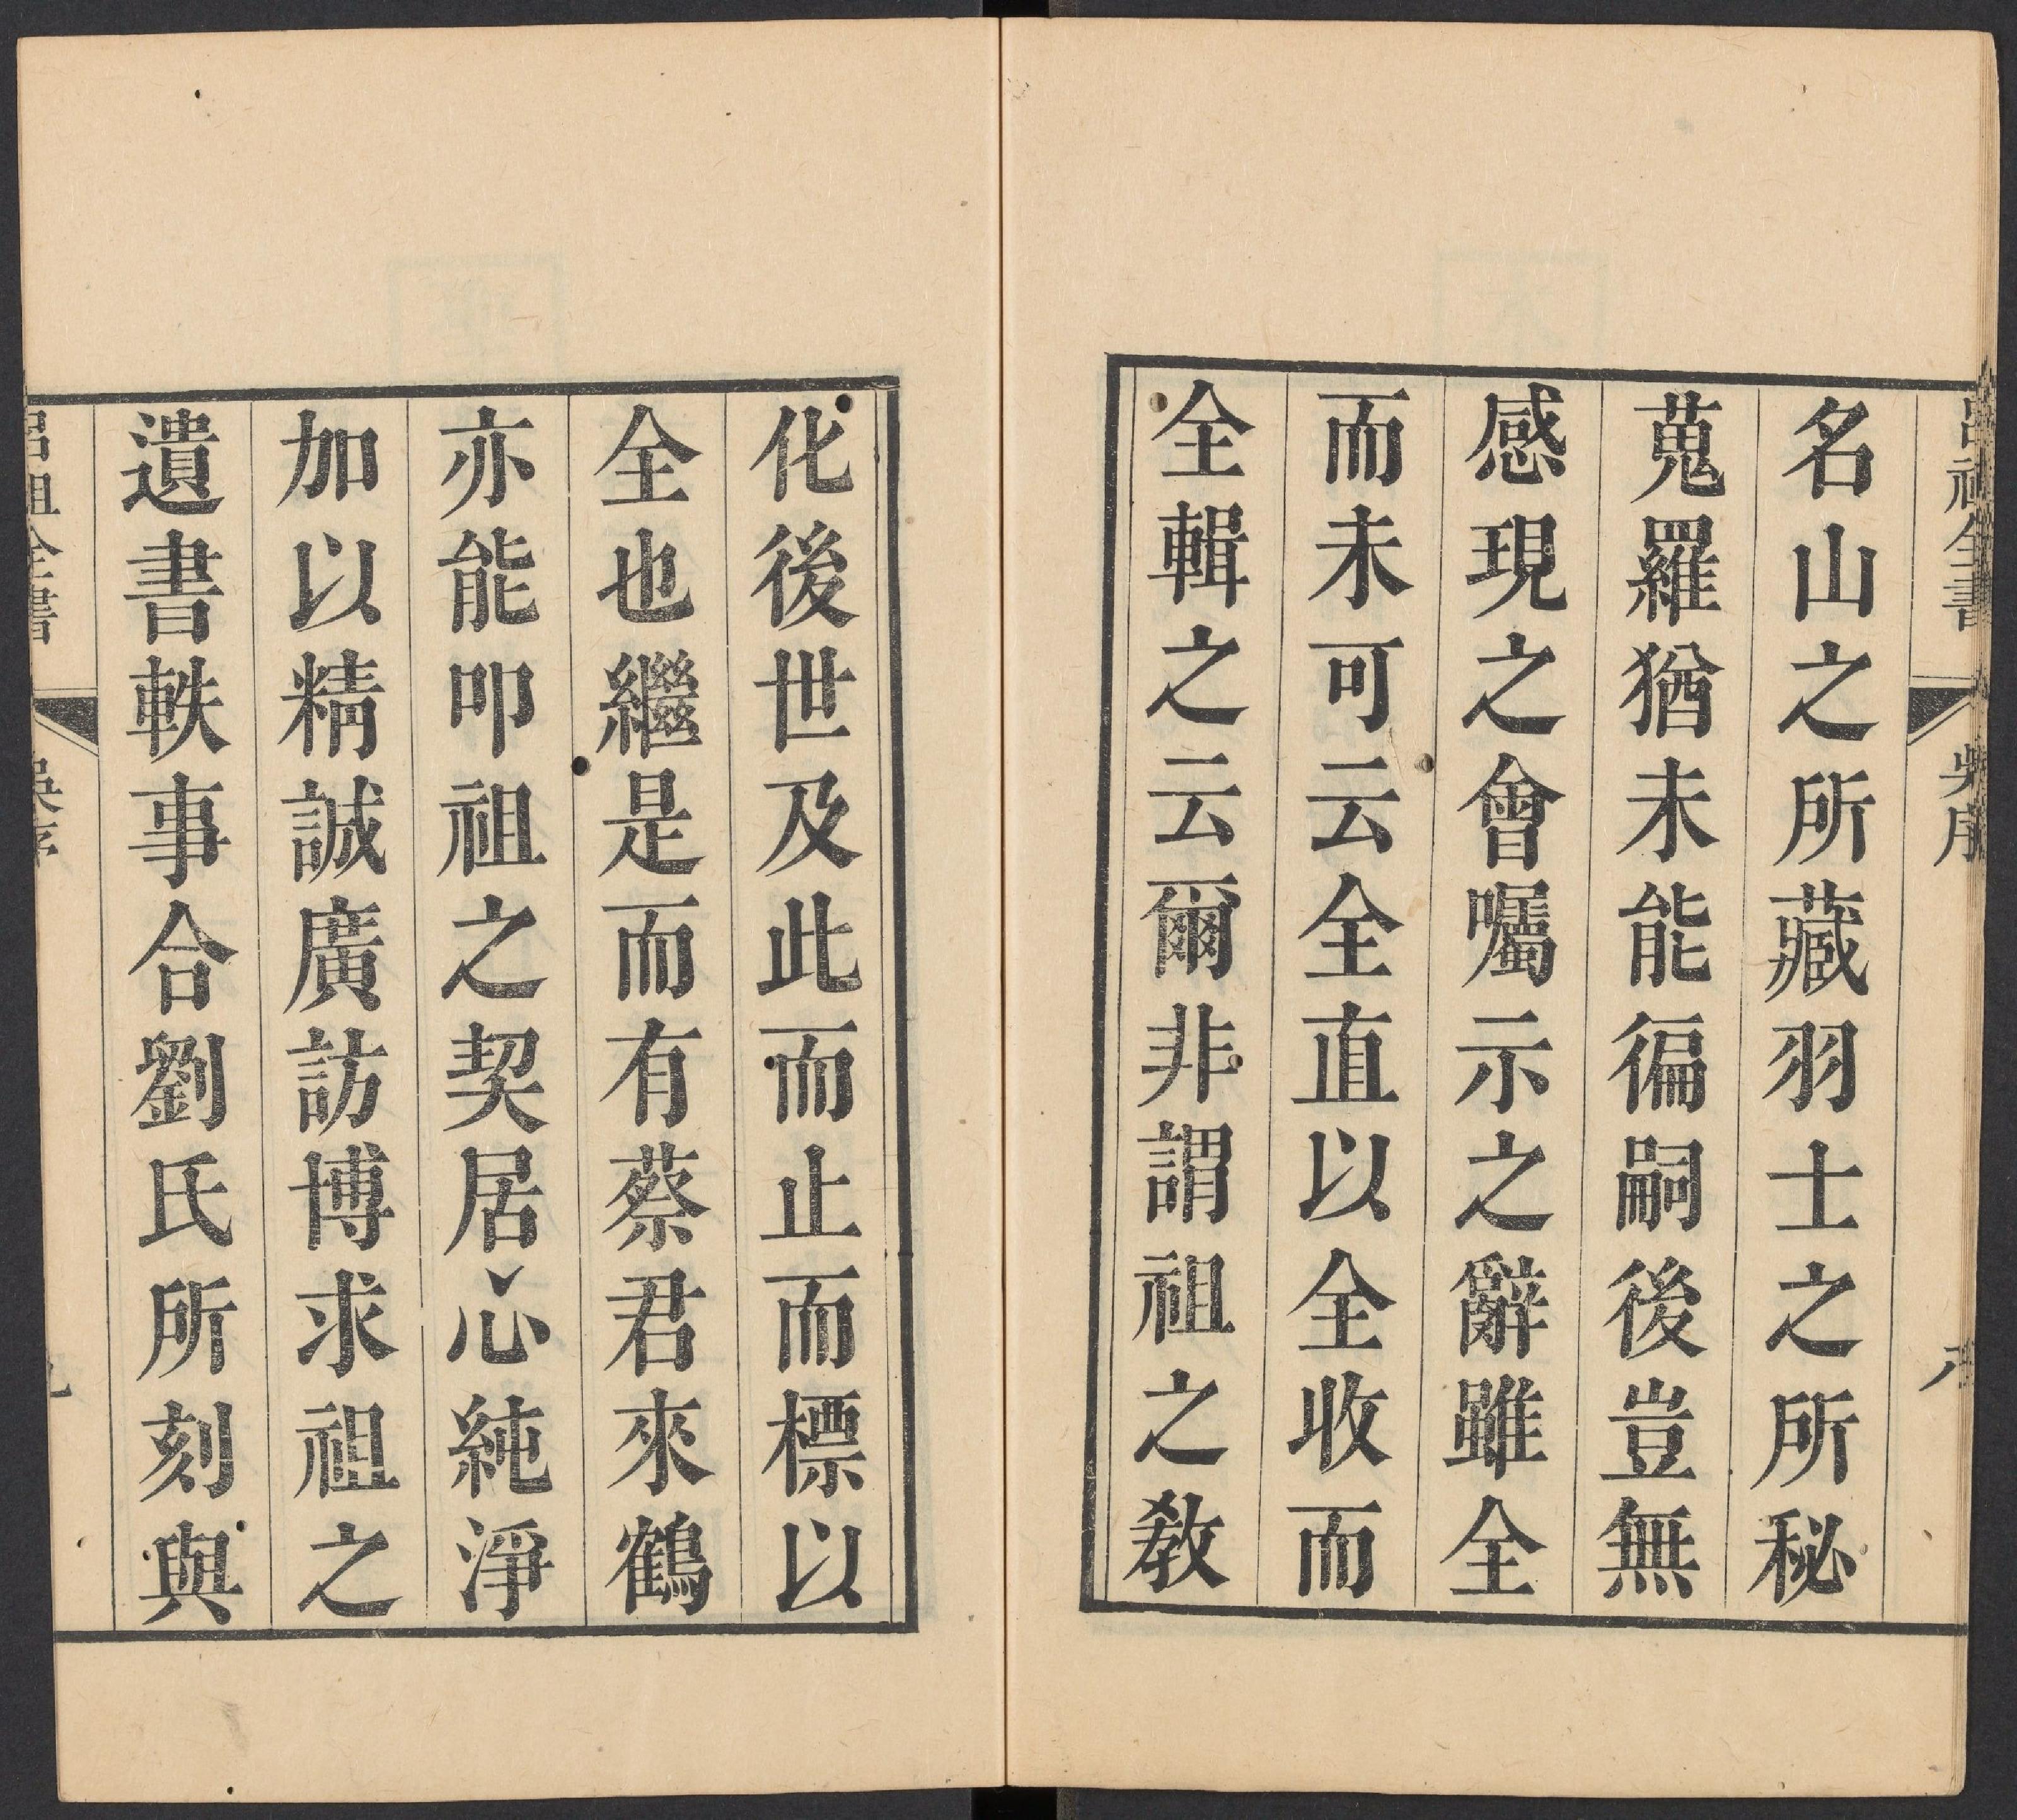 呂祖全書 吳序 八
名山之所藏羽士之所秘
蒐羅猶未能徧嗣後豈無
感現之會囑示之辭雖全
而未可云全直以全收而
全輯之云爾非謂祖之教
化後世及此而止而標以
全也繼是而有蔡君來鶴
亦能叩祖之契居心純淨
加以精誠廣訪博求祖之
遺書軼事合劉氏所刻與
呂祖全書 吳序